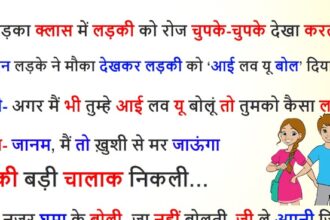 ड़का क्लास में लड़की को रोज चुपके-चुपके देखा कर
न लड़के ने मौका देखकर लड़की को ‘आई लव यू बोल’ दिय
- अगर मैं भी तुम्हे आई लव यू बोलूं तो तुमको कैसा ल
- जानम, मैं तो ख़ुशी से मर जाऊंगा
की बड़ी चालाक निकली...
नजर घुमा के बोली, जा नहीं बोलती, जी ले अपनी